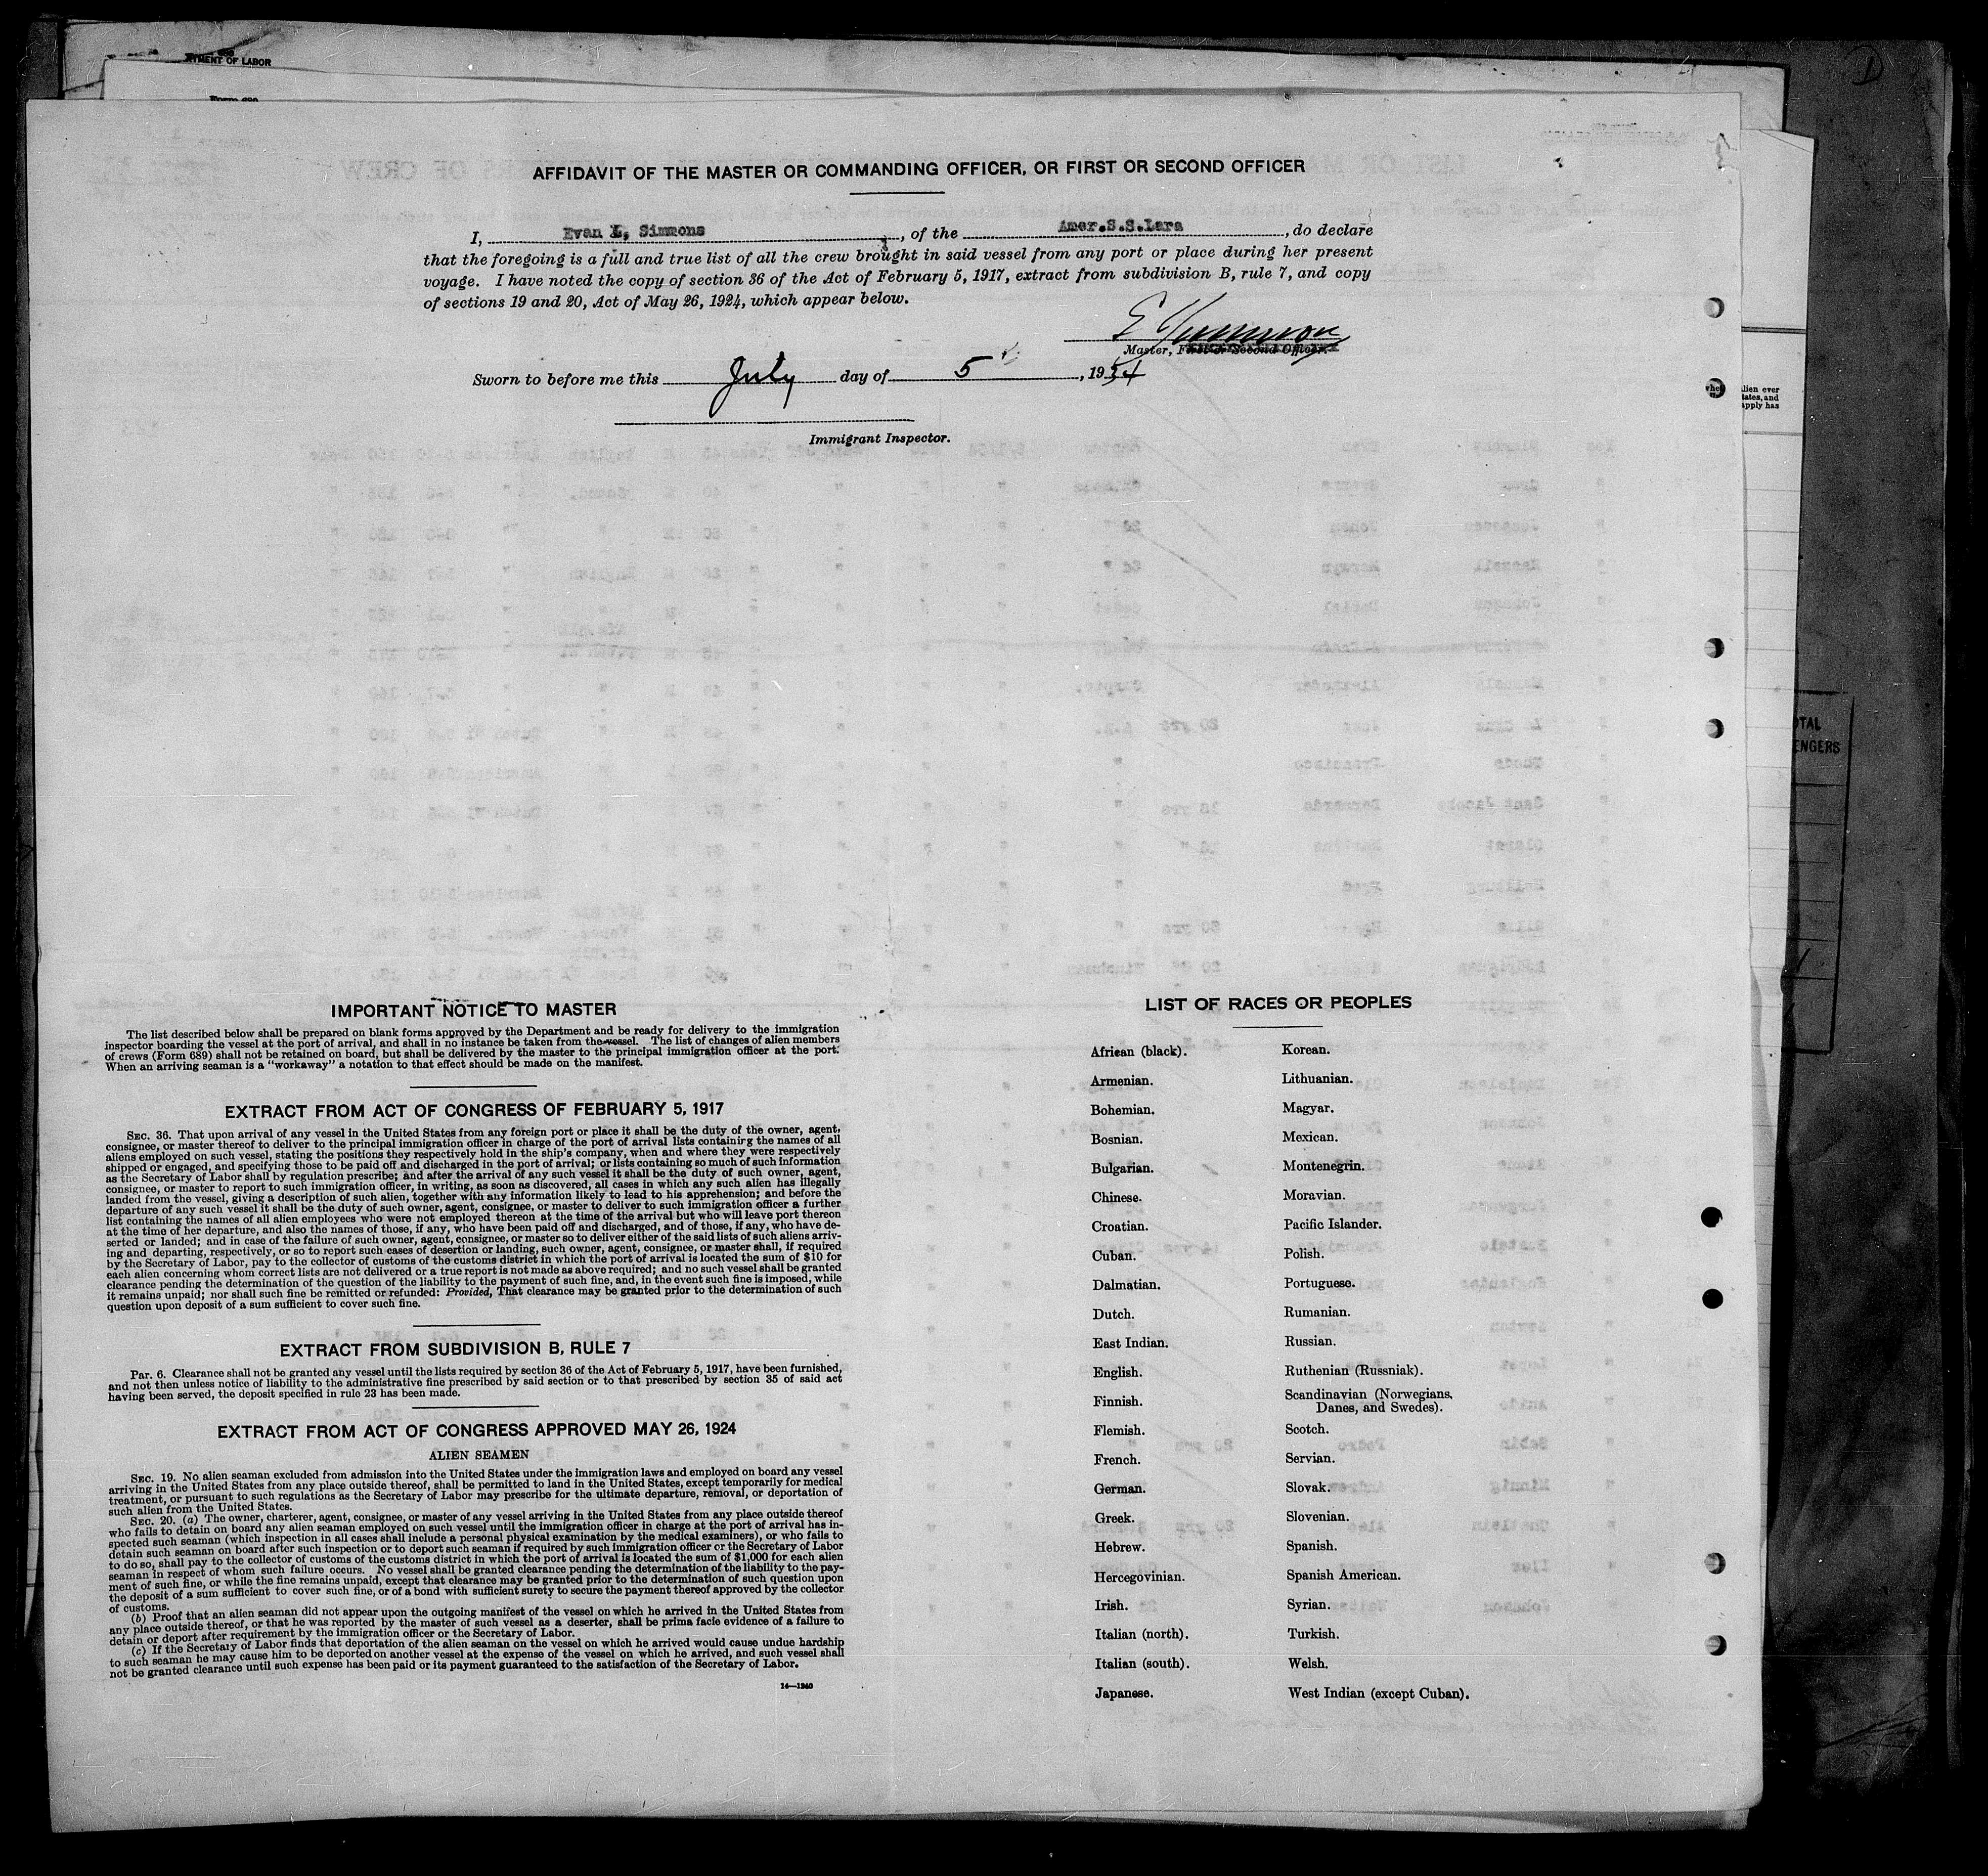 RTMENT OF LABOR
Form 680
D
AFFIDAVIT OF THE MASTER OR COMMANDING OFFICER, OR FIRST OR SECOND OFFICER
I, Evan L, Simmons, of the Amer.S.S.Lara, do declare
that the foregoing is a full and true list of all the crew brought in said vessel from any port or place during her present
voyage. I have noted the copy of section 36 of the Act of February 5, 1917, extract from subdivision B, rule 7, and copy
of sections 19 and 20, Act of May 26, 1924, which appear below.
Master, First or Second Officer.
Sworn to before me this July day of 5, 1934
Immigrant Inspector.
alien ever
tates, and
apply has
OTAL
ENGERS
IMPORTANT NOTICE TO MASTER
The list described below shall be prepared on blank forms approved by the Department and be ready for delivery to the immigration
inspector boarding the vessel at the port of arrival, and shall in no instance be taken from the vessel. The list of changes of alien members
of crews (Form 689) shall not be retained on board, but shall be delivered by the master to the principal immigration officer at the port.
When an arriving seaman is a "workaway" a notation to that effect should be made on the manifest.
EXTRACT FROM ACT OF CONGRESS OF FEBRUARY 5, 1917
SEC. 36. That upon arrival of any vessel in the United States from any foreign port or place it shall be the duty of the owner, agent,
consignee, or master thereof to deliver to the principal immigration officer in charge of the port of arrival lists containing the names of all
aliens employed on such vessel, stating the positions they respectively hold in the ship's company, when and where they were respectively
shipped or engaged, and specifying those to be paid off and discharged in the port of arrival; or lists containing so much of such information
as the Secretary of Labor shall by regulation prescribe; and after the arrival of any such vessel it shall be the duty of such owner, agent,
consignee, or master to report to such immigration officer, in writing, as soon as discovered, all cases in which any such alien has illegally
landed from the vessel, giving a description of such alien, together with any information likely to lead to his apprehension; and before the
departure of any such vessel it shall be the duty of such owner, agent, consignee, or master to deliver to such immigration officer a further
list containing the names of all alien employees who were not employed thereon at the time of the arrival but who will leave port thereon
at the time of her departure, and also the names of those, if any, who have been paid off and discharged, and of those, if any, who have de-
serted or landed; and in case of the failure of such owner, agent, consignee, or master so to deliver either of the said lists of such aliens arriv-
ing and departing, respectively, or so to report such cases of desertion or landing, such owner, agent, consignee, or master shall, if required
by the Secretary of Labor, pay to the collector of customs of the customs district in which the port of arrival is located the sum of $10 for
each alien concerning whom correct lists are not delivered or a true report is not made as above required; and no such vessel shall be granted
clearance pending the determination of the question of the liability to the payment of such fine, and, in the event such fine is imposed, while
it remains unpaid; nor shall such fine be remitted or refunded: Provided, That clearance may be granted prior to the determination of such
question upon deposit of a sum sufficient to cover such fine.
EXTRACT FROM SUBDIVISION B, RULE 7
Par. 6. Clearance shall not be granted any vessel until the lists required by section 36 of the Act of February 5, 1917, have been furnished,
and not then unless notice of liability to the administrative fine prescribed by said section or to that prescribed by section 35 of said act
having been served, the deposit specified in rule 23 has been made.
EXTRACT FROM ACT OF CONGRESS APPROVED MAY 26, 1924
ALIEN SEAMEN
SEC. 19. No alien seaman excluded from admission into the United States under the immigration laws and employed on board any vessel
arriving in the United States from any place outside thereof, shall be permitted to land in the United States, except temporarily for medical
treatment, or pursuant to such regulations as the Secretary of Labor may prescribe for the ultimate departure, removal, or deportation of
such alien from the United States.
SEC. 20. (a) The owner, charterer, agent, consignee, or master of any vessel arriving in the United States from any place outside thereof
who fails to detain on board any alien seaman employed on such vessel until the immigration officer in charge at the port of arrival has in-
spected such seaman (which inspection in all cases shall include a personal physical examination by the medical examiners), or who fails to
detain such seaman on board after such inspection or to deport such seaman if required by such immigration officer or the Secretary of Labor
to do so, shall pay to the collector of customs of the customs district in which the port of arrival is located the sum of $1,000 for each alien
seaman in respect of whom such failure occurs. No vessel shall be granted clearance pending the determination of the liability to the pay-
ment of such fine, or while the fine remains unpaid, except that clearance may be granted prior to the determination of such question upon
the deposit of a sum sufficient to cover such fine, or of a bond with sufficient surety to secure the payment thereof approved by the collector
of customs.
(b) Proof that an alien seaman did not appear upon the outgoing manifest of the vessel on which he arrived in the United States from
any place outside thereof, or that he was reported by the master of such vessel as a deserter, shall be prima facie evidence of a failure to
detain or deport after requirement by the immigration officer or the Secretary of Labor.
(c) If the Secretary of Labor finds that deportation of the alien seaman on the vessel on which he arrived would cause undue hardship
to such seaman he may cause him to be deported on another vessel at the expense of the vessel on which he arrived, and such vessel shall
not be granted clearance until such expense has been paid or its payment guaranteed to the satisfaction of the Secretary of Labor.
14—1240
LIST OF RACES OR PEOPLES
African (black).
Armenian.
Bohemian.
Bosnian.
Bulgarian.
Chinese.
Croatian.
Cuban.
Dalmatian.
Dutch.
East Indian.
English.
Finnish.
Flemish.
French.
German.
Greek.
Hebrew.
Hercegovinian.
Irish.
Italian (north).
Italian (south).
Japanese.
Korean.
Lithuanian.
Magyar.
Mexican.
Montenegrin.
Moravian.
Pacific Islander.
Polish.
Portuguese.
Rumanian.
Russian.
Ruthenian (Russniak).
Scandinavian (Norwegians,
Danes, and Swedes).
Scotch.
Servian.
Slovak.
Slovenian.
Spanish.
Spanish American.
Syrian.
Turkish.
Welsh.
West Indian (except Cuban).